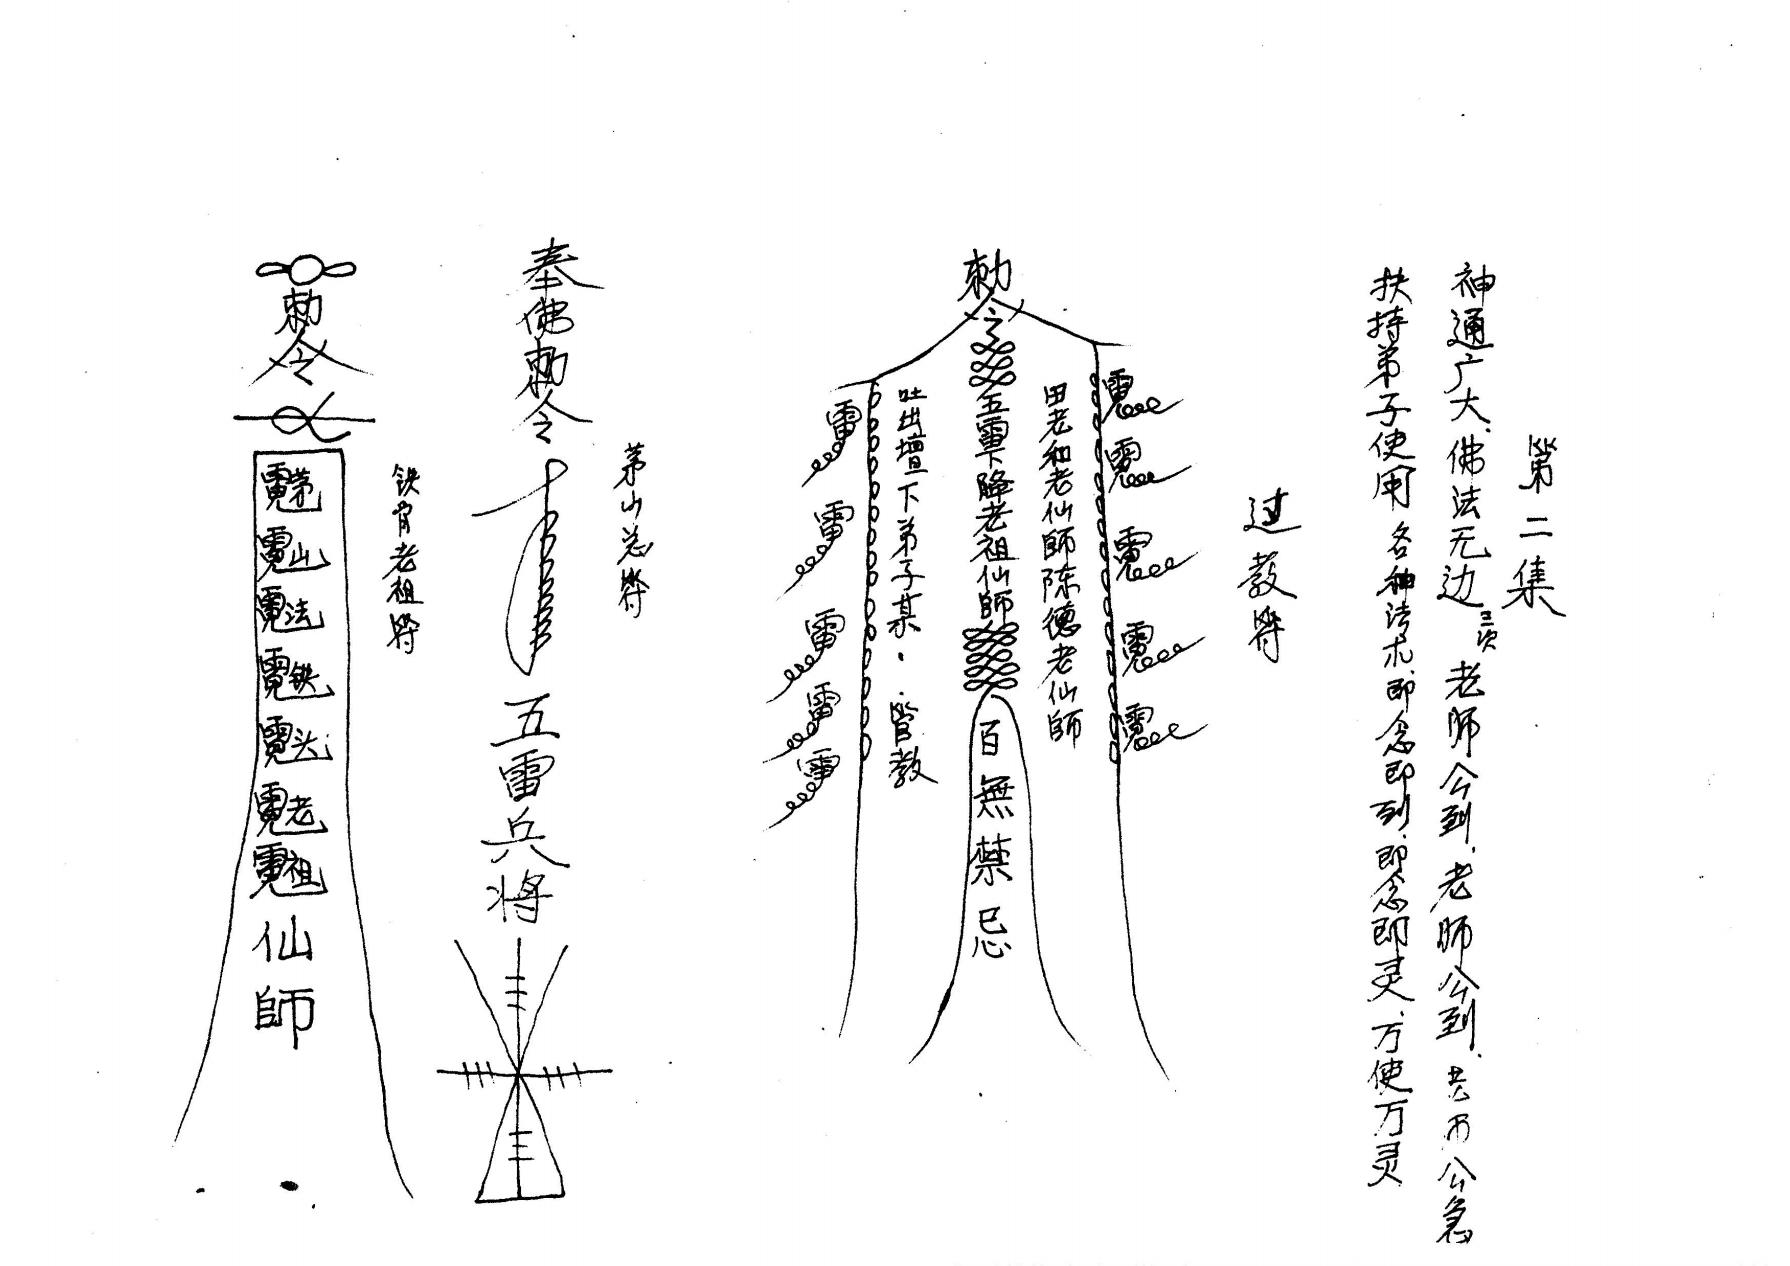 第二集
神通广大、佛法无边三次老师公到、老师公到、急
扶持弟子使用各种法术、即念即到、即念即灵、万使万灵
过教符
雷雷雷雷雷
田老和老仙師陈德老仙師
勅令五雷下降老祖仙師百無禁忌
吐出壇下弟子某··教
雷雷雷雷雷
茅山总符
奉佛勅令五雷兵将
铁背老祖符
勅令茅山法铁头老祖仙師